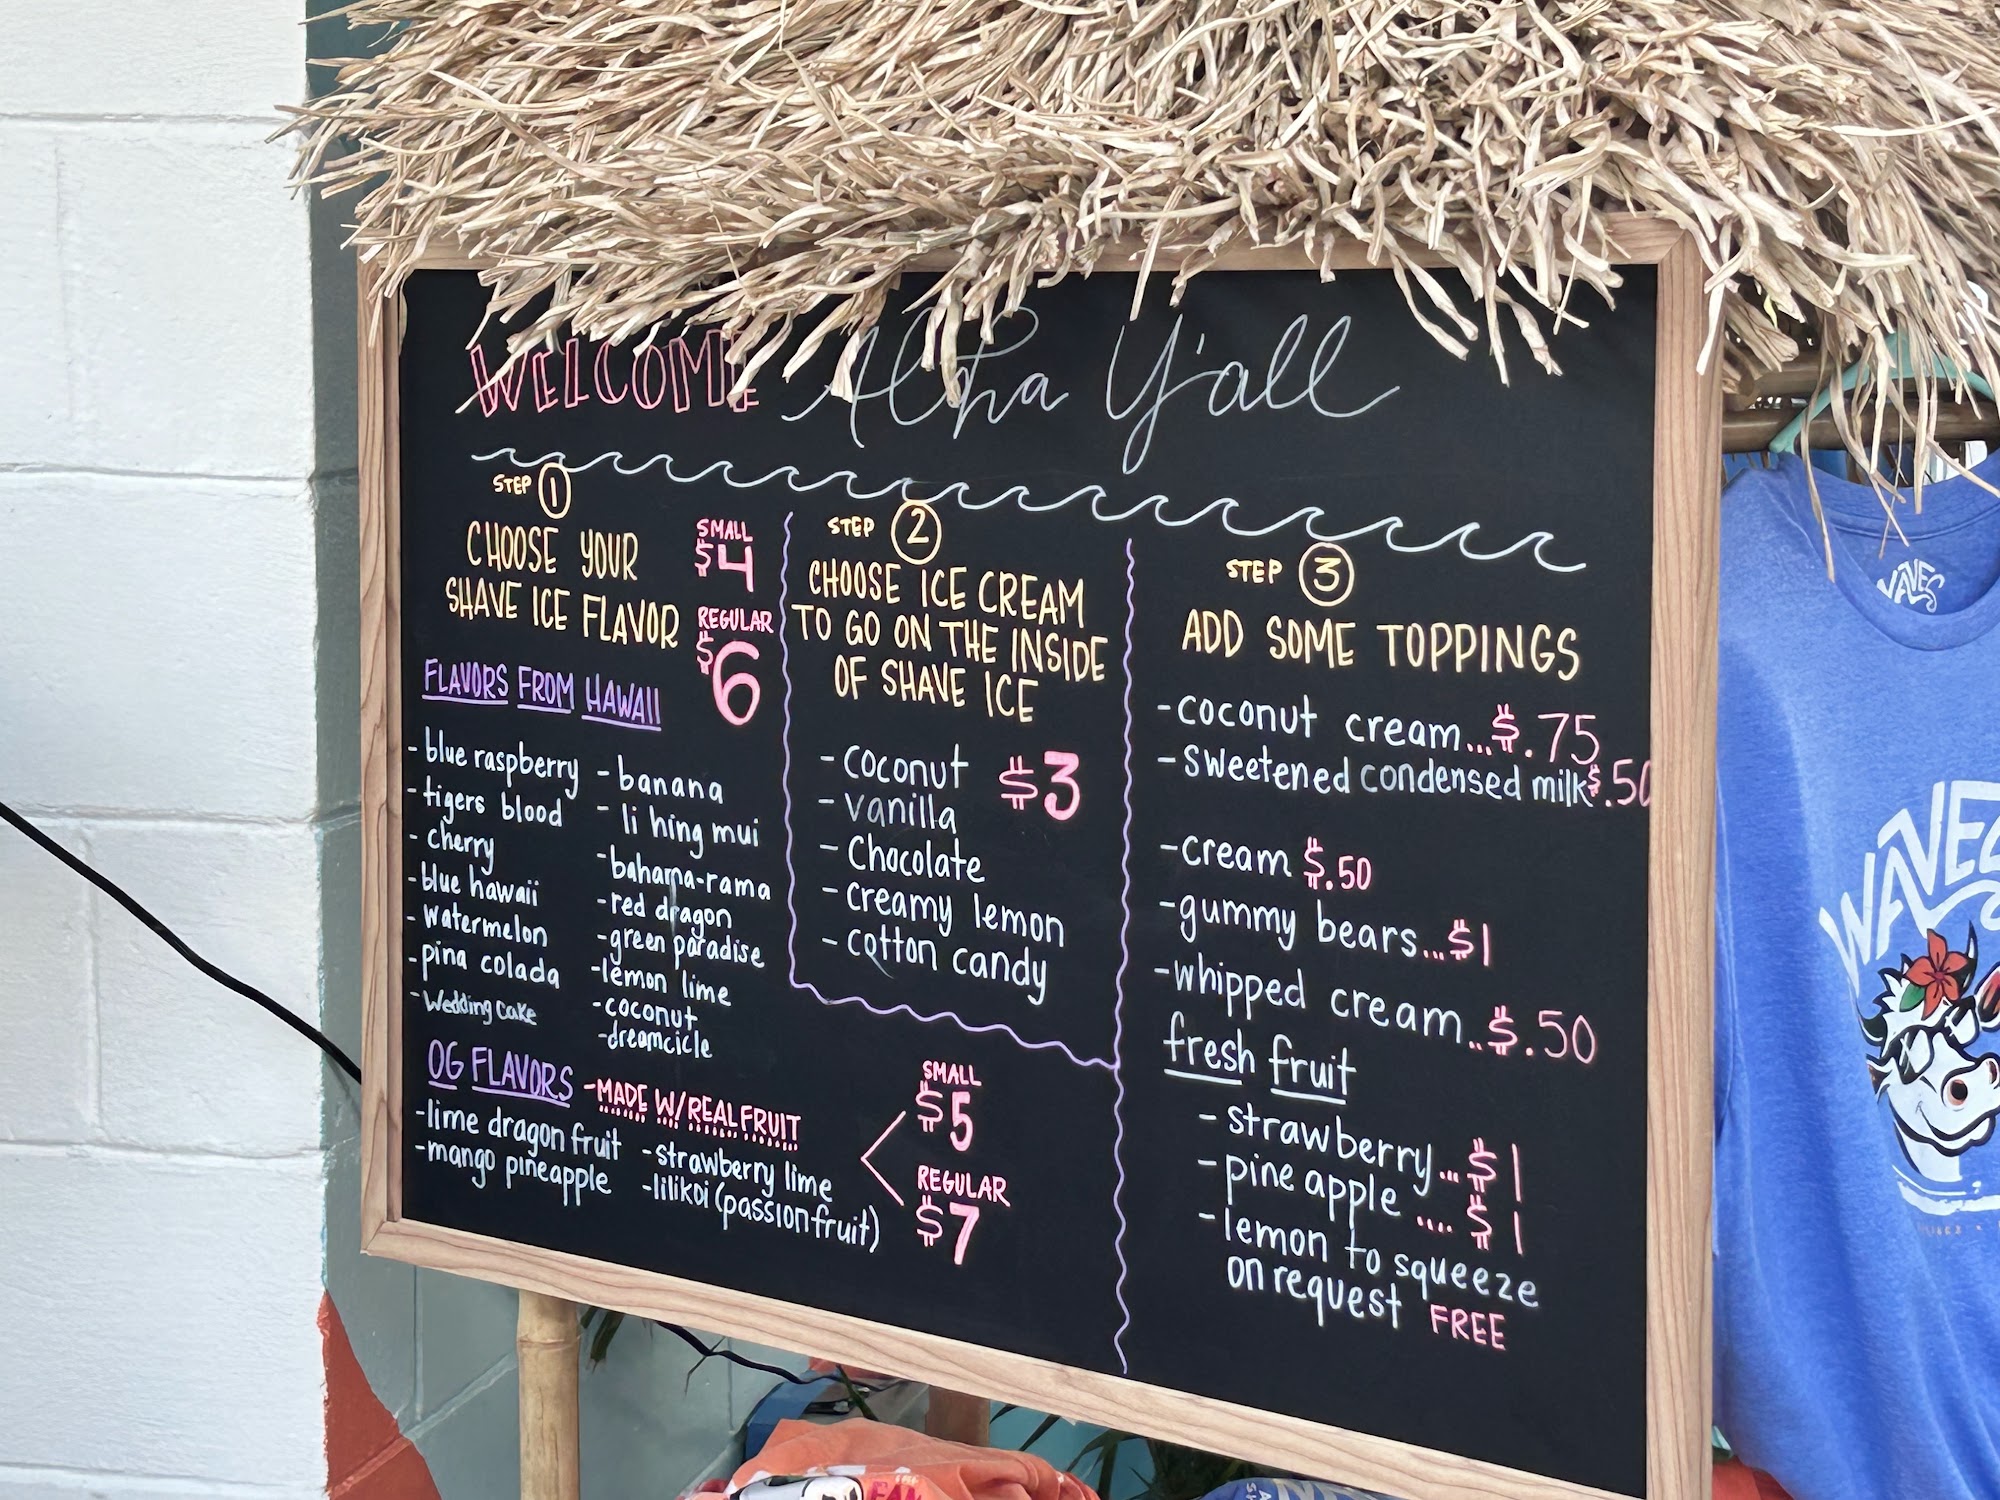 WELCOME Aloha Y'all
STEP 1
CHOOSE YOUR
SHAVE ICE FLAVOR
SMALL
$4
REGULAR
$6
FLAVORS FROM HAWAII
- blue raspberry
- tigers blood
- cherry
- blue hawaii
- watermelon
- pina colada
- Wedding cake
- banana
- li hing mui
- bahama-rama
- red dragon
- green paradise
- lemon lime
- coconut
- dreamcicle
OG FLAVORS - MADE W/ REAL FRUIT
- lime dragon fruit
- mango pineapple
- strawberry lime
- lilikoi (passionfruit)
SMALL
$5
REGULAR
$7
STEP 2
CHOOSE ICE CREAM
TO GO ON THE INSIDE
OF SHAVE ICE
- coconut $3
- vanilla
- Chocolate
- creamy lemon
- cotton candy
STEP 3
ADD SOME TOPPINGS
- coconut cream... $.75
- sweetened condensed milk $.50
- cream $.50
- gummy bears... $1
- whipped cream.. $.50
fresh fruit
- strawberry... $1
- pine apple .... $1
- lemon to squeeze
on request FREE
WAVES
WAVES